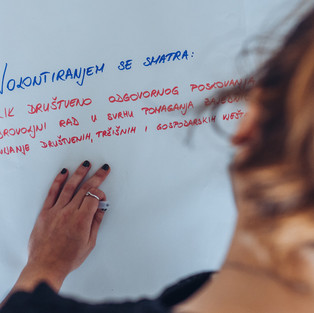 VOLONTIRANJEM SE SMATRA:
LIK DRUŠTVENO ODGOVORNOG POSLOVANJA
BROVOLJNI RAD U SVRHU POMAGANJA
VIJANJE DRUŠTVENIH, TRŽIŠNIH I GOSPODARSKIH VJEŠT